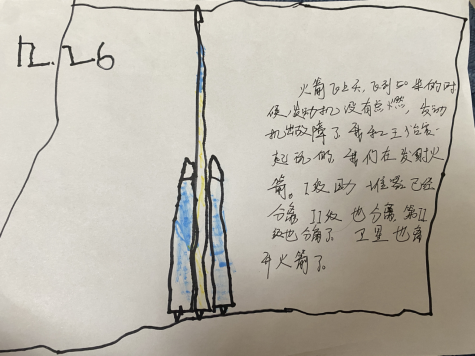 12.26
火箭飞上天，飞到50米的时
候，发动机没有点燃，发动
机出故障了 我和王
起玩 我们在发射火
箭。I级助推器已经
分离 II级也分离 第II
级也分离了 卫星也离
开火箭了。